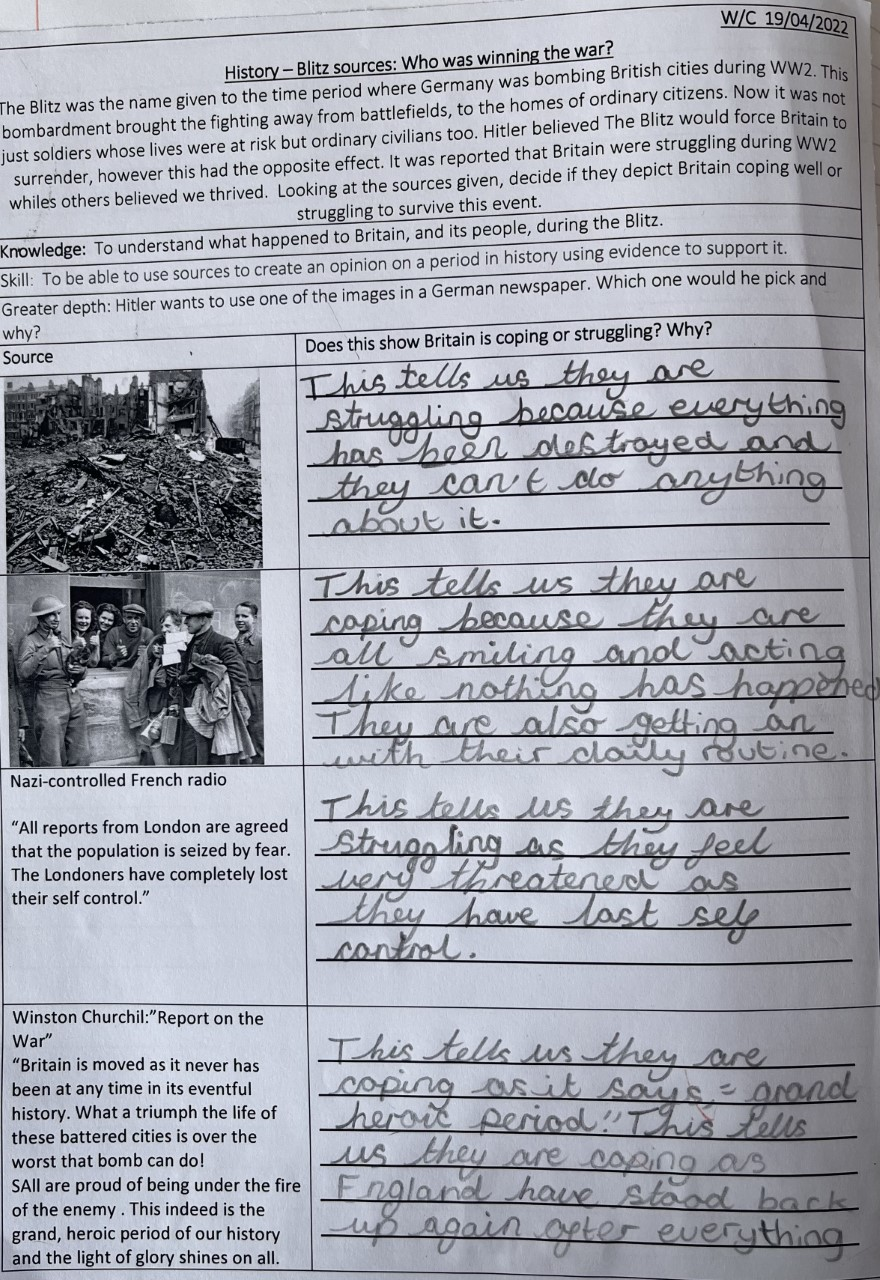 W/C 19/04/2022
History – Blitz sources: Who was winning the war?
The Blitz was the name given to the time period where Germany was bombing British cities during WW2. This
bombardment brought the fighting away from battlefields, to the homes of ordinary citizens. Now it was not
just soldiers whose lives were at risk but ordinary civilians too. Hitler believed The Blitz would force Britain to
surrender, however this had the opposite effect. It was reported that Britain were struggling during WW2
whiles others believed we thrived. Looking at the sources given, decide if they depict Britain coping well or
struggling to survive this event.
Knowledge: To understand what happened to Britain, and its people, during the Blitz.
Skill: To be able to use sources to create an opinion on a period in history using evidence to support it.
Greater depth: Hitler wants to use one of the images in a German newspaper. Which one would he pick and
why?
Source
Does this show Britain is coping or struggling? Why?
This tells us they are
struggling because everything
has been destroyed and
they can't do anything
about it.
This tells us they are
coping because they are
all smiling and acting
like nothing has happened
They are also getting on
with their daily routine.
Nazi-controlled French radio
"All reports from London are agreed
that the population is seized by fear.
The Londoners have completely lost
their self control."
This tells us they are
struggling as they feel
very threatened as
they have lost self
control.
Winston Churchil:"Report on the
War"
"Britain is moved as it never has
been at any time in its eventful
history. What a triumph the life of
these battered cities is over the
worst that bomb can do!
SAll are proud of being under the fire
of the enemy . This indeed is the
grand, heroic period of our history
and the light of glory shines on all.
This tells us they are
coping as it says = grand
heroic period!! This tells
us they are coping as
England have stood back
up again after everything